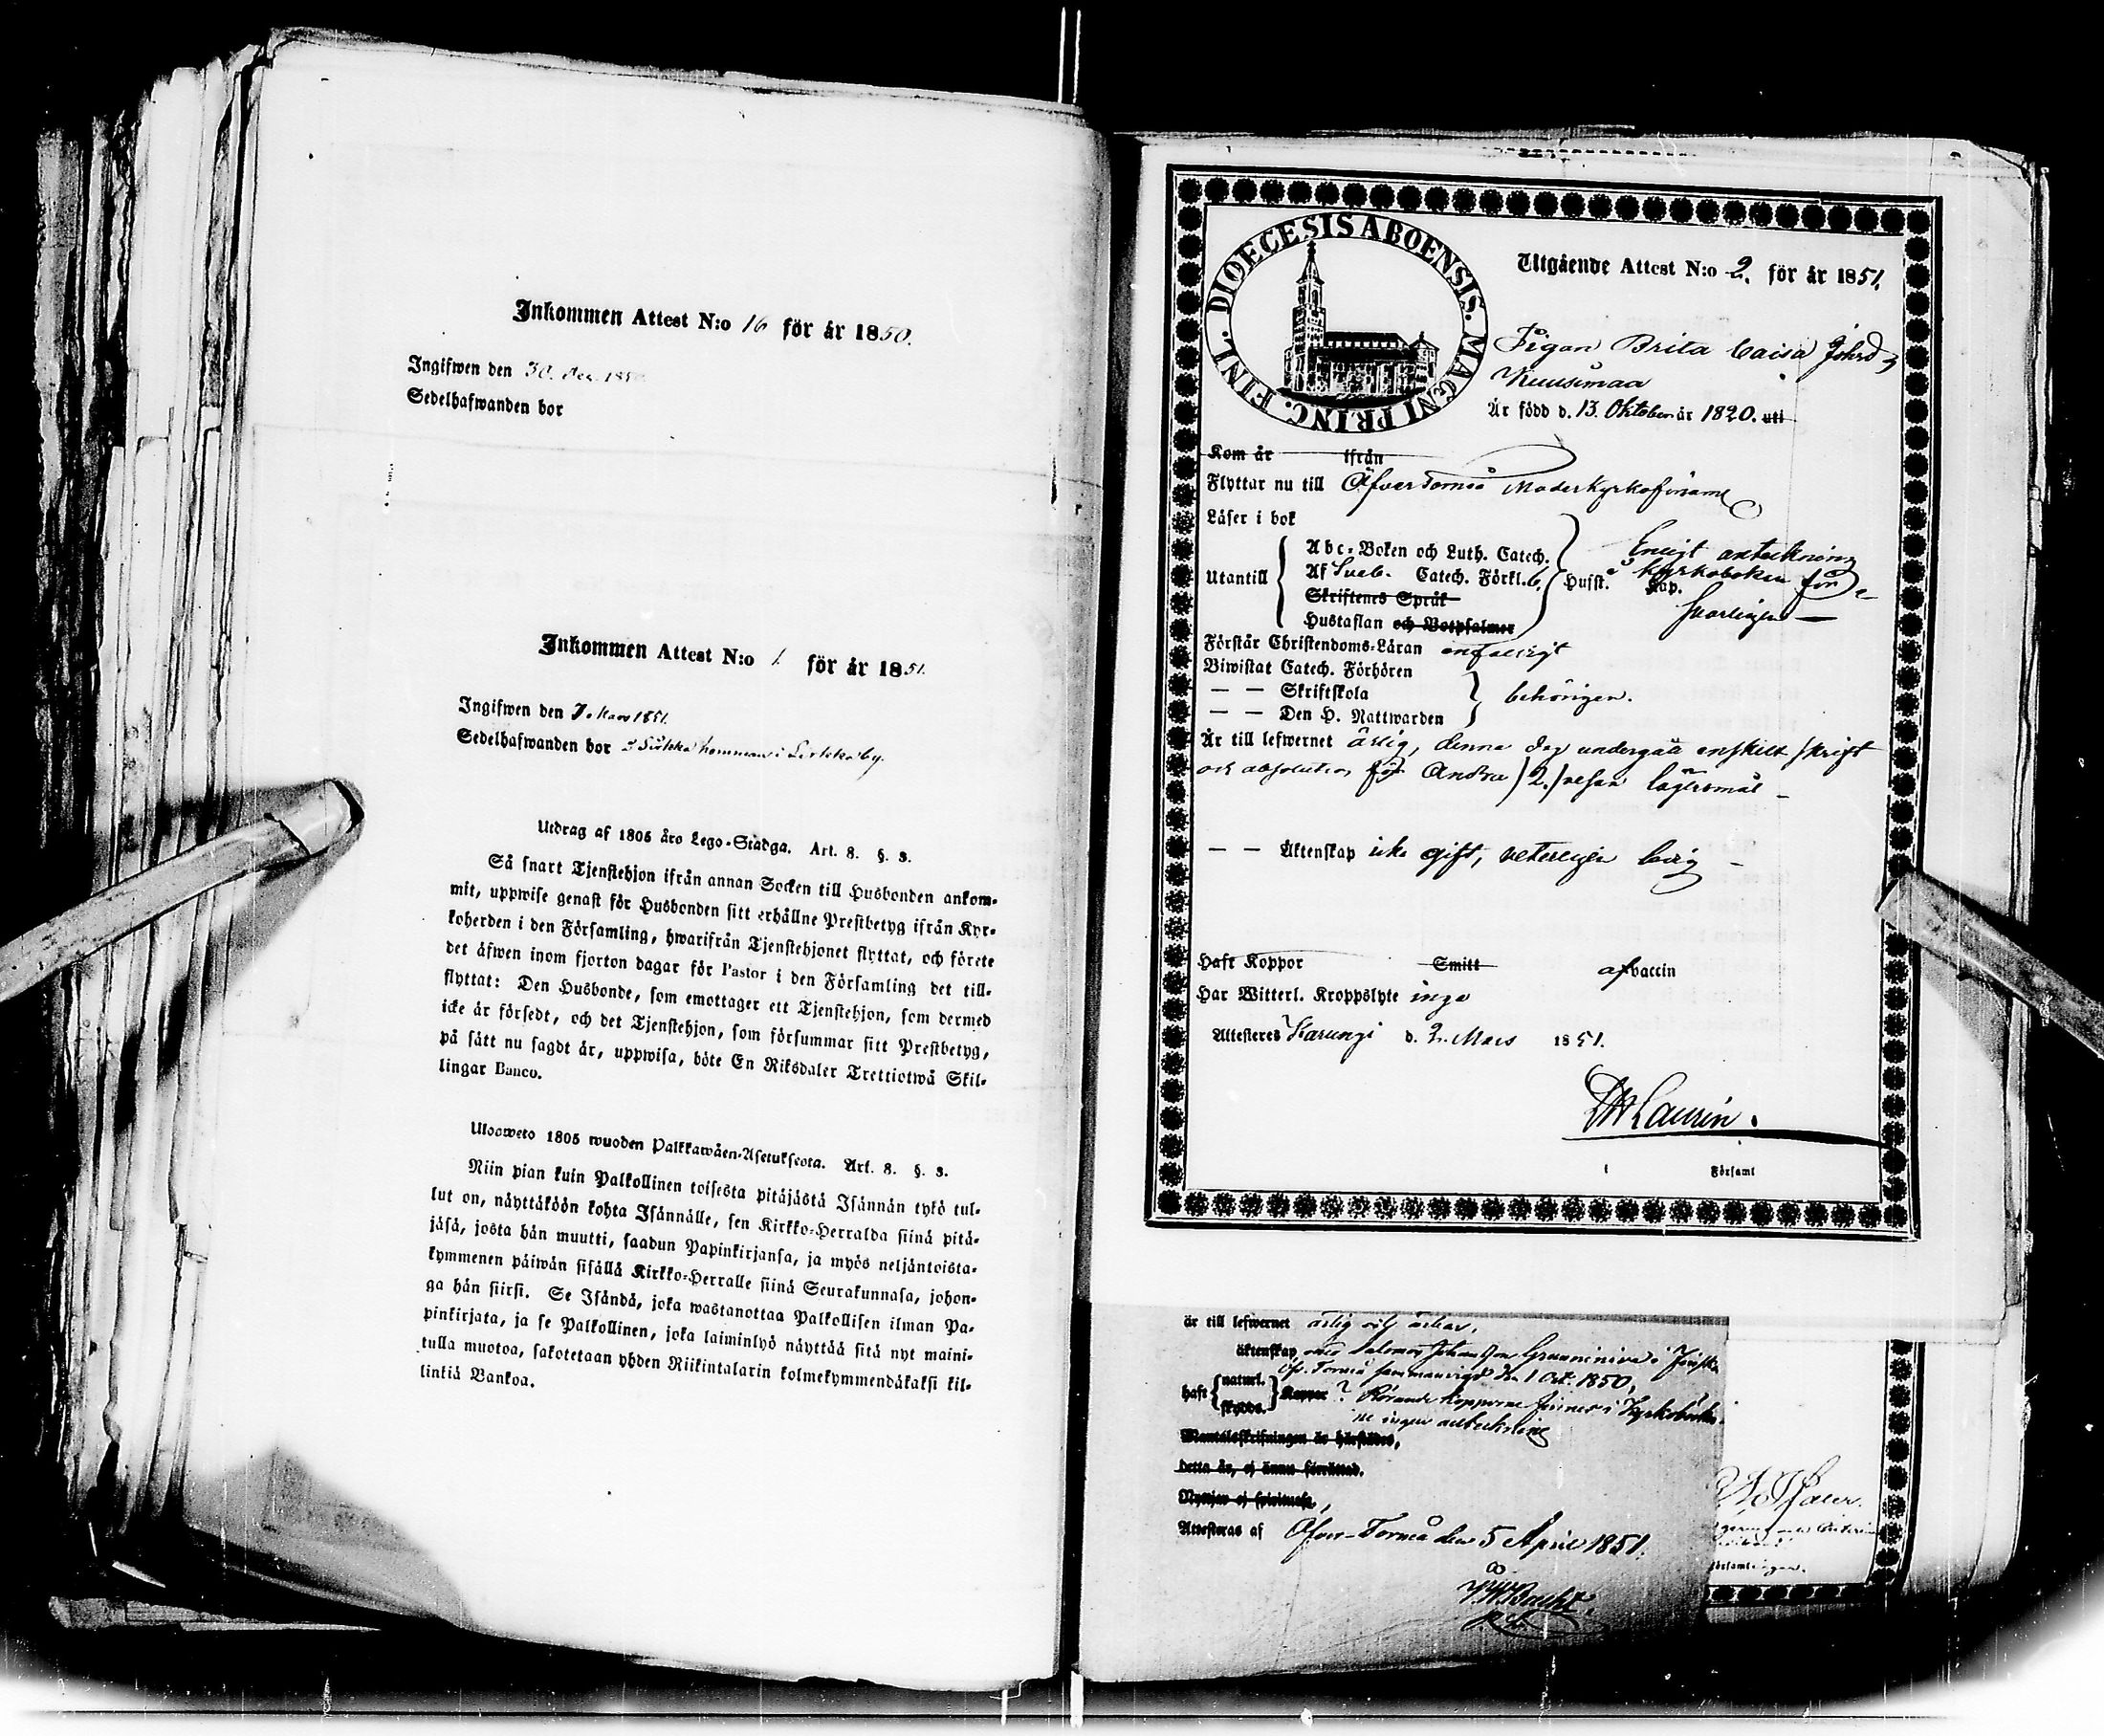 Inkommen Attest N:o 16 för år 1850.
Ingifwen den 30. Dec. 185
Sedelhafwanden bor
Inkommen Attest N:o 1. för år 1851.
Ingifwen den 7. Mars 1851.
Sedelhafwanden bor
Utdrag af 1805 års Lego-Stadga. Art. 8. §. 3.
Så snart Tjenstehjon ifrån annan Socken till Husbonden ankom-
mit, uppwise genast för Husbonden sitt erhållne Prestbetyg ifrån Kyr-
koherden i den Församling, hwarifrån Tjenstehjonet flyttat, och förete
det äfwen inom fjorton dagar för Pastor i den Församling det till-
flyttat: Den Husbonde, som emottager ett Tjenstehjon, som dermed
icke är försedt, och det Tjenstehjon, som försummar sitt Prestbetyg,
på sätt nu sagdt är, uppwisa, böte En Riksdaler Trettiotwå Skil-
lingar Banco.
Ulosweto 1805 wuoden Palkkawäen-Asetuksesta. Art. 8. §. 3.
Niin pian kuin Palkollinen toisesta pitäjästä Isännän tykö tul-
lut on, näyttäköön kohta Isännälle, sen Kirkko-Herralda siinä pitä-
jäsä, josta hän muutti, saadun Papinkirjansa, ja myös neljäntoista-
kymmenen päiwän sisällä Kirkko-Herralle siinä Seurakunnasa, johon-
ga hän siirsi. Se Isändä, joka wastanottaa Palkollisen ilman Pa-
pinkirjata, ja se Palkollinen, joka laiminlyö näyttää sitä nyt maini-
tulla muotoa, sakotetaan yhden Riikintalarin kolmekymmendäkaksi kil-
linkiä Bankoa.
DIOECESIS ABOENSIS. MAGNI PRINC. FINL.
Utgående Attest N:o 2. för år 1851.
Pigan Brita Caisa Johsd
Kuusimaa
Är född d. 13. Oktober år 1820. uti
Kom år ifrån
Flyttar nu till Öfver Torneå Moderkyrkoförsaml
Läser i bok
Utantill
Abc-Boken och Luth. Catech.
Af Sveb. Catech. Förkl. 6. Husst. Kap.
Skriftenes Språk
Hustaflan och Botpsalmer
Enligt anteckning
i Kyrkoboken för
svarligen
Förstår Christendoms-Läran enfaldigt
Biwistat Catech. Förhören
— — Skriftskola
— — Den H. Nattwarden
behörigen.
Är till lefwernet ärlig, denna dag undergått enskilt skrift
och absolution för Andra /2./ resan lägersmål
— — Äktenskap icke gift, veterligen ledig
Haft Koppor Smitt af vaccin
Har Witterl. Kroppslyte inga
Attesteres Karungi d. 2. Mars 1851.
Laurin.
i Församl
är till lefwernet ärlig och ärbar,
äktenskap med Salomon Johansson Grunniniva i
Öf. Torneå sammanvigd den 1 Oct. 1850,
haft naturl. skydds. Koppor ? Rörande kopporne finnes i Kyrkoböcker
ne ingen anteckning
Mantalsskrifningen är härstädes,
detta år, ej ännu förrättad.
Attesteras af Öfver-Torneå den 5 April 1851.
församlingen.